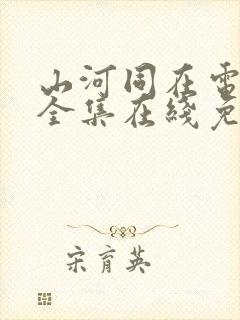 山河同在電
全集在綫免
宋育英